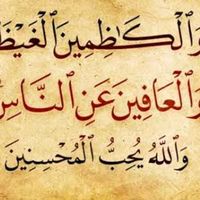 وَالْكَاظِمِينَ الْغَيْظَ
وَالْعَافِينَ عَنِ النَّاسِ
وَاللَّهُ يُحِبُّ الْمُحْسِنِينَ